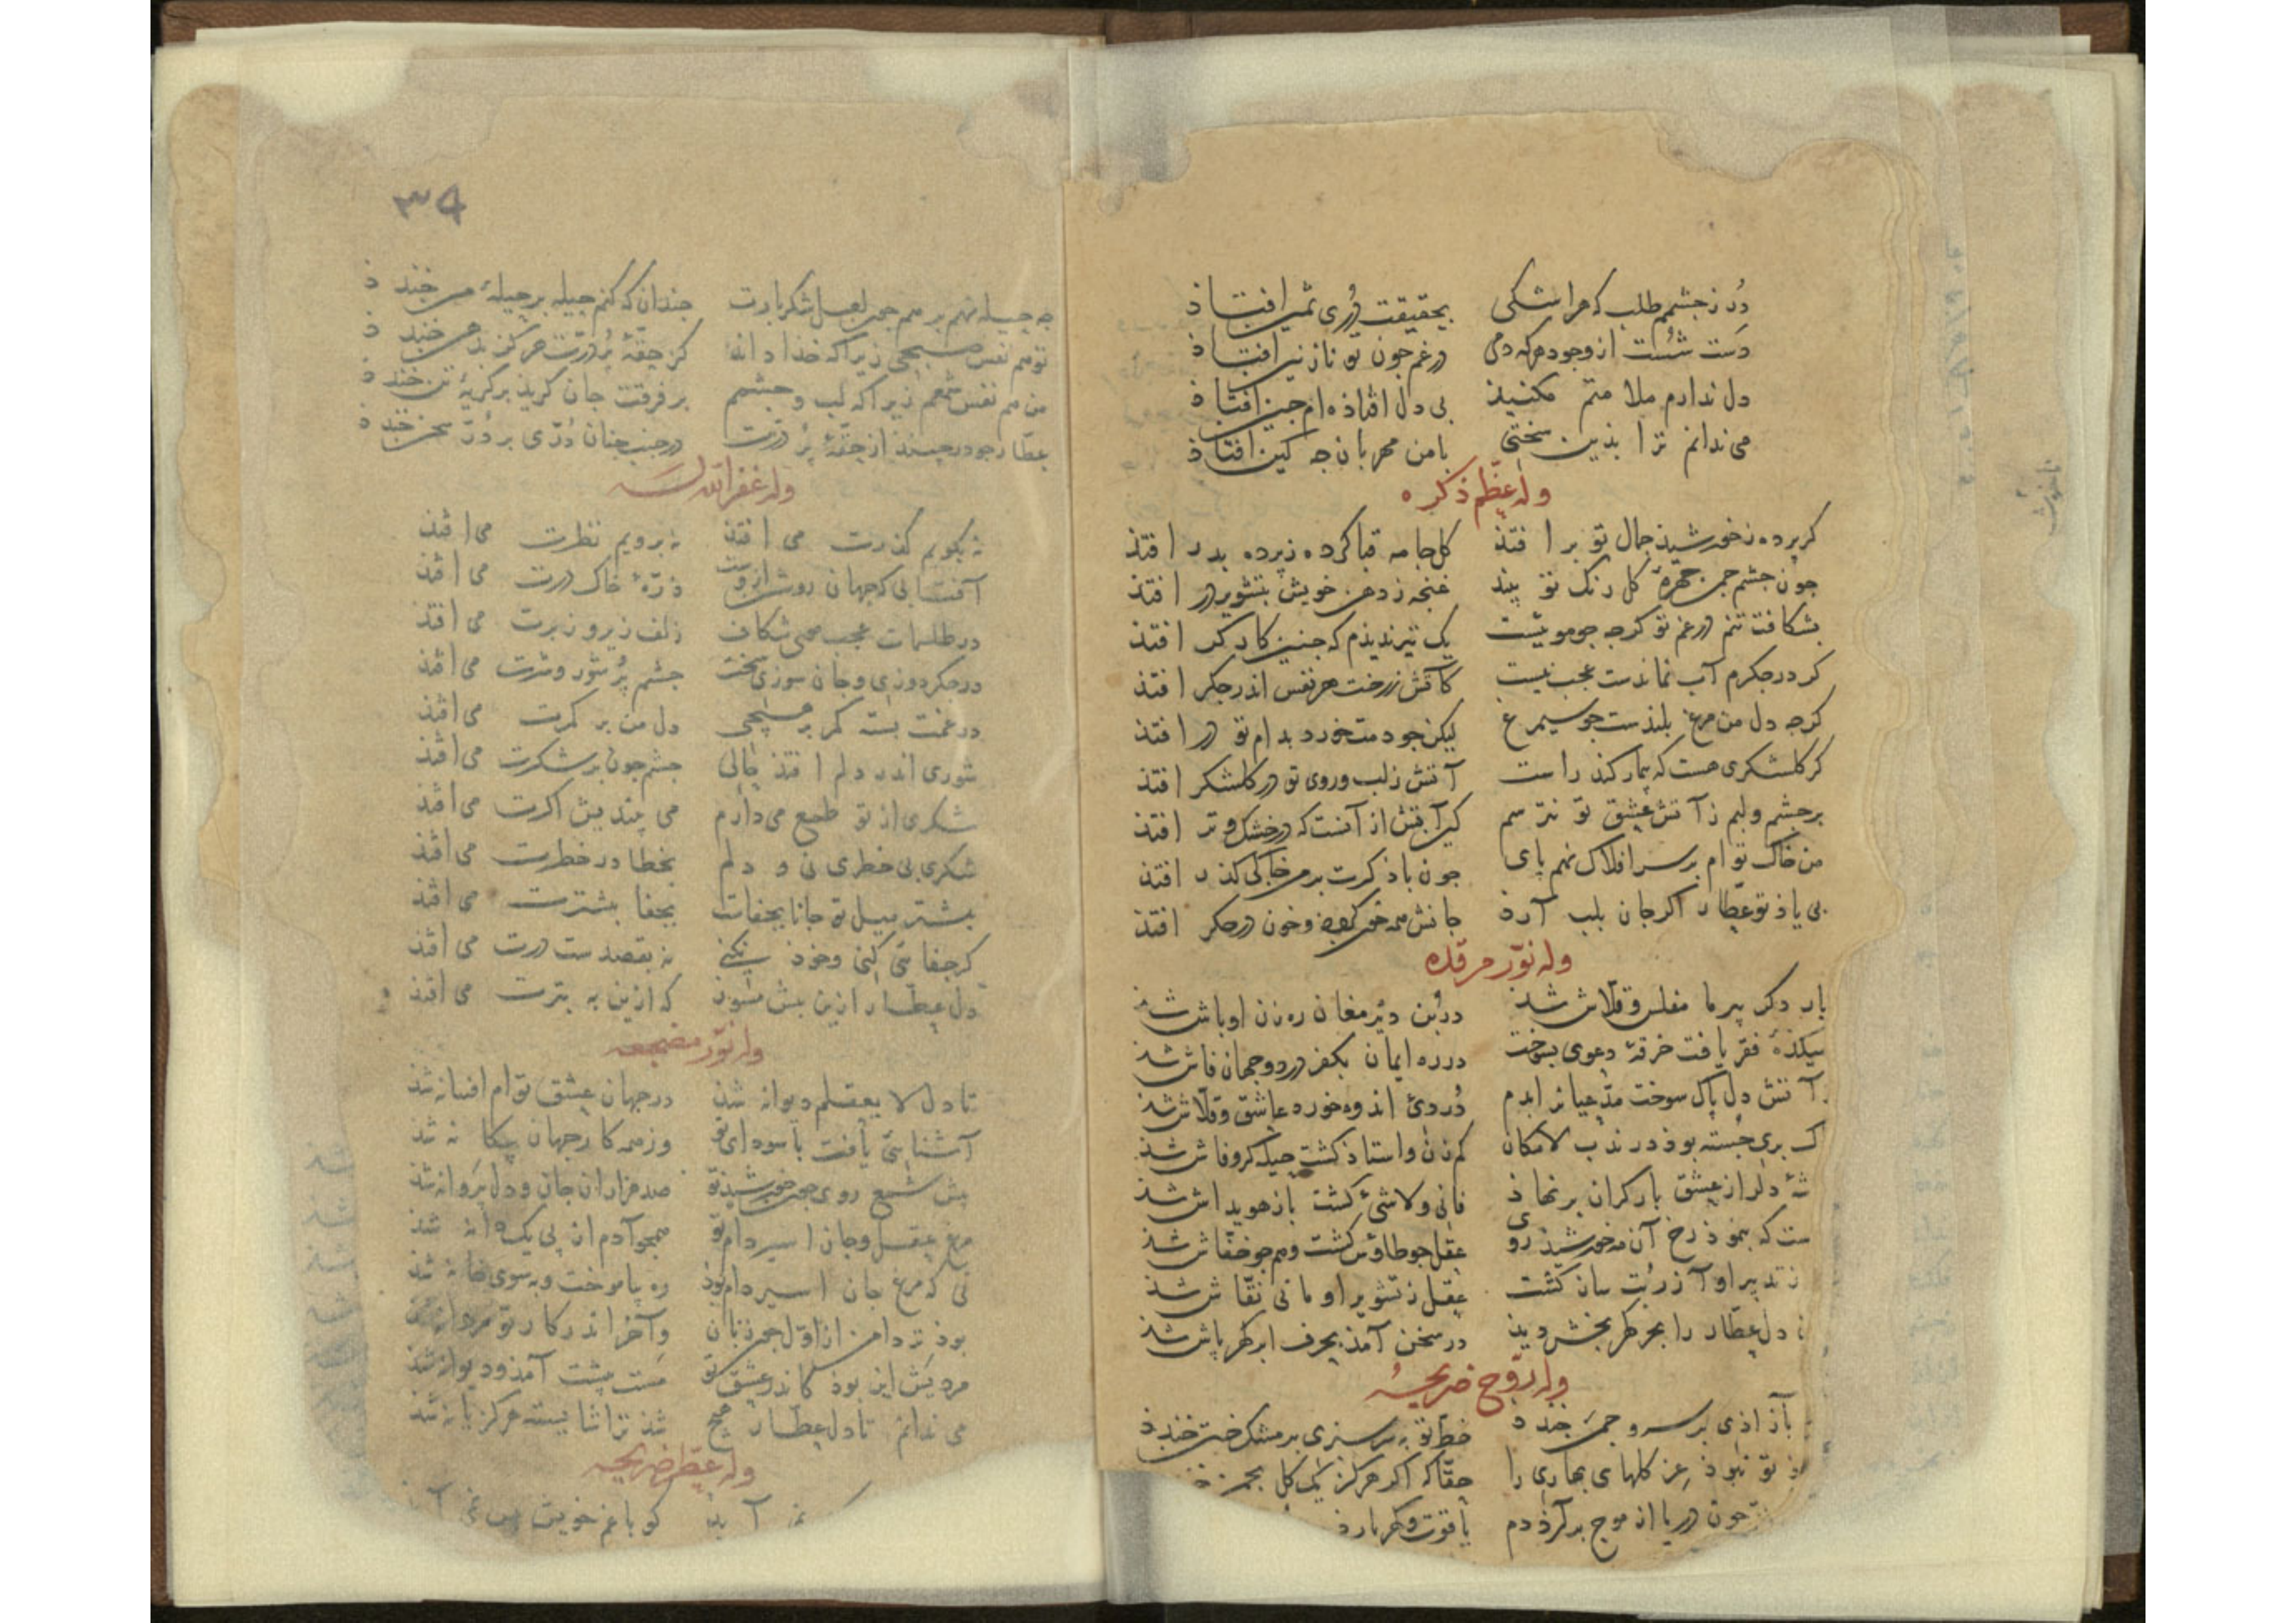 دُر ز جشمم طلب که هر اشکی بحقیقت دُری ثمین افتاذ
دست شست از وجود هر که دمی در غم جون تو نازنین افتاذ
دل ندارم ملامتم مکنیذ بی دل افتاذه ام جنین افتاذ
می ندانم ترا بذین سختی با من مهربان جه کین افتاذ
وله عظم ذکره
کر برده ز خورشیذ جمال تو بر افتذ کل جامه قبا کرده ز برده بدر افتذ
جون جشم جمن جهرهٔ کل رنک تو بیند غنجه ز دهن خویش بتشویر در افتذ
بشکافت تنم در غم تو کرجه جو موئیست یک تیر ندیذم که جنین کارکر افتذ
کر در جکرم آب نماندست عجب نیست کاتش ز رخت هر نفس اندر جکر افتذ
کرجه دل من مرغ بلندست جو سیمرغ لیکن جو دمت خورد بدام تو در افتذ
کر کلشکری هست که بیمار کند راست آتش ز لب و روی تو در کلشکر افتذ
بر جشم و لبم ز آتش عشق تو نترسم کین آتش از آنست که در خشک و تر افتذ
من خاک توام بر سر افلاک نهم بای جون باذ کرت بر من خاکی کذر افتذ
بی یاذ تو عطار اکر جان بلب آرذ جانش همه خون و خون در جکر افتذ
وله نوّر مرقده
بار دکر بیر ما مفلس و قلاش شد در بُن دیر مغان ره زن اوباش شد
میکدهٔ فقر یافت خرقهٔ دعوی بسوخت در ره ایمان بکفر در دو جهان فاش شد
ز آتش دل باک سوخت مدعیانرا بدم دُردی اندوه خورد عاشق و قلاش شد
باک بری جُسته بوذ در ندب لامکان کم زن و استاذ کشت حیله کر و فاش شد
دلرا ز عشق بار کران بر نهاذ فانی و لاشئ کشت باز هویداش شد
ست که بنموذ رخ آن مه خورشیذ روی عقل جو طاوس کشت وهم جو خفاش شد
ز تدبیر او آذر بُت سان کشت عقل ز تشویر او مانی نقاش شد
دل عطار را بحر کهر بخش دیذ در سخن آمذ بحرف ابر کهر باش شد
وله روّح ضریحه
آزاذی بر سرو جمن خندذ خط تو به سرسبزی بر مشک ختن خندذ
تو نبوذ عز کلهای بهاری را حقا که اکر هرکز یک کل بجمن
جون دریا از موج برآرذ دم یاقوت و کهر بارذ
۳۹
جه حیله نهم بر هم جون لعل شکر بارت جندان که کنم حیله بر حیلهٔ من خندذ
تو هم نفس صبحی زیرا که خدا داند کز حقهٔ بر دُرّت هرکز بدهن خندذ
من هم نفس شمعم زیرا که لب و جشمم بر فرقتت جان کریذ بر کریهٔ تن خندذ
عطار جو در جیند از حقهٔ بر دُرّت در جنب جنان دُرّی بر دُرّ سخن خندذ
وله غفر الله له
نه بکویم کذرت می افتذ نه برویم نظرت می افتذ
آفتابی که جهان روشن ازوست ذرّهٔ خاک درت می افتذ
در طلسمات عجب می شکاف زلف زیر و زبرت می افتذ
در جکر دوزی و جان سوزی سخت جشم بُر شور و شرت می افتذ
در غمت بسته کمر بر هیجی دل من بر کمرت می افتذ
شوری اندر دلم افتذ حالی جشم جون بر شکرت می افتذ
شکری از تو طمع می دارم می بندیش اکرت می افتذ
شکری بی خطری نی و دلم بخطا در خطرت می افتذ
بیشتر میل تو جانا بجفاست بجفا بیشترت می افتذ
کر جفائی کنی و خوذ نکنی نه بقصدست درت می افتذ
دل عطار ازین بیش مسوز که ازین به بترت می افتذ
وله نوّر مضجعه
تا دل لایعقلم دیوانه شذ در جهان عشق تو ام افسانه شذ
آشنائی یافت با سودای تو وز همه کار جهان بیکانه شذ
بیش شمع روی جون خورشیذ تو صد هزاران جان و دل بروانه شذ
مرغ عقل و جان اسیر دام تو همجو آدم از بی یک دانه شذ
نی که مرغ جان اسیر دام بوذ ره بیاموخت و بسوی خانه شذ
بوذ تر دامن از اوّل جون زنان و آخر اندر کار تو مردانه شذ
مردیش این بوذ کاندر عشق تو مست بیشت آمذ و دیوانه شذ
می ندانم تا دل عطار هیج شذ ترا شایسته هرکز یا نه شذ
وله عظّم ضریحه
آید کو با غم خویش